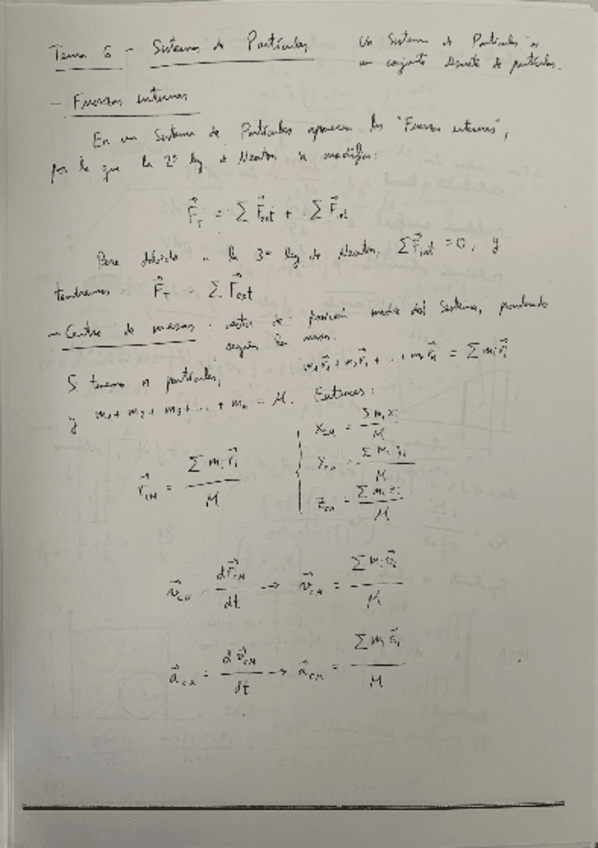 Tema 6 - Sistemas de Partículas
Un Sistema de Partículas es
un conjunto discreto de partículas.
- Fuerzas internas
En un Sistema de Partículas aparecen las "Fuerzas internas",
por lo que la 2ª ley de Newton se modifica:
F⃗_T = Σ F⃗ext + Σ F⃗int
Pero debido a la 3ª ley de Newton, Σ F⃗int = 0, y
tendremos: F⃗_T = Σ F⃗ext
- Centro de masas: vector de posición media del Sistema, ponderado
según las masas.
Si tenemos n partículas,
m₁r⃗₁ + m₂r⃗₂ + ... + mₙr⃗ₙ = Σ mᵢr⃗ᵢ
y m₁ + m₂ + m₃ + ... + mₙ = M. Entonces:
r⃗_CM = Σ mᵢ r⃗ᵢ / M
x_CM = Σ mᵢ xᵢ / M
y_CM = Σ mᵢ yᵢ / M
z_CM = Σ mᵢ zᵢ / M
v⃗_CM = d r⃗_CM / dt → v⃗_CM = Σ mᵢ v⃗ᵢ / M
a⃗_CM = d v⃗_CM / dt → a⃗_CM = Σ mᵢ a⃗ᵢ / M